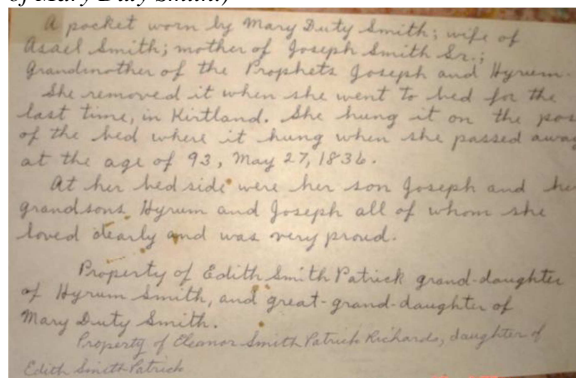 of Mary Duty Smith)
A pocket worn by Mary Duty Smith; wife of
Asael Smith; mother of Joseph Smith Sr.;
Grandmother of the Prophets Joseph and Hyrum.
She removed it when she went to bed for the
last time, in Kirtland. She hung it on the pos
of the bed where it hung when she passed away
at the age of 93, May 27, 1836.
At her bed side were her son Joseph and her
grandsons Hyrum and Joseph all of whom she
loved dearly and was very proud.
Property of Edith Smith Patrick grand-daughter
of Hyrum Smith, and great-grand-daughter of
Mary Duty Smith.
Property of Eleanor Smith Patrick Richards, daughter of
Edith Smith Patrick